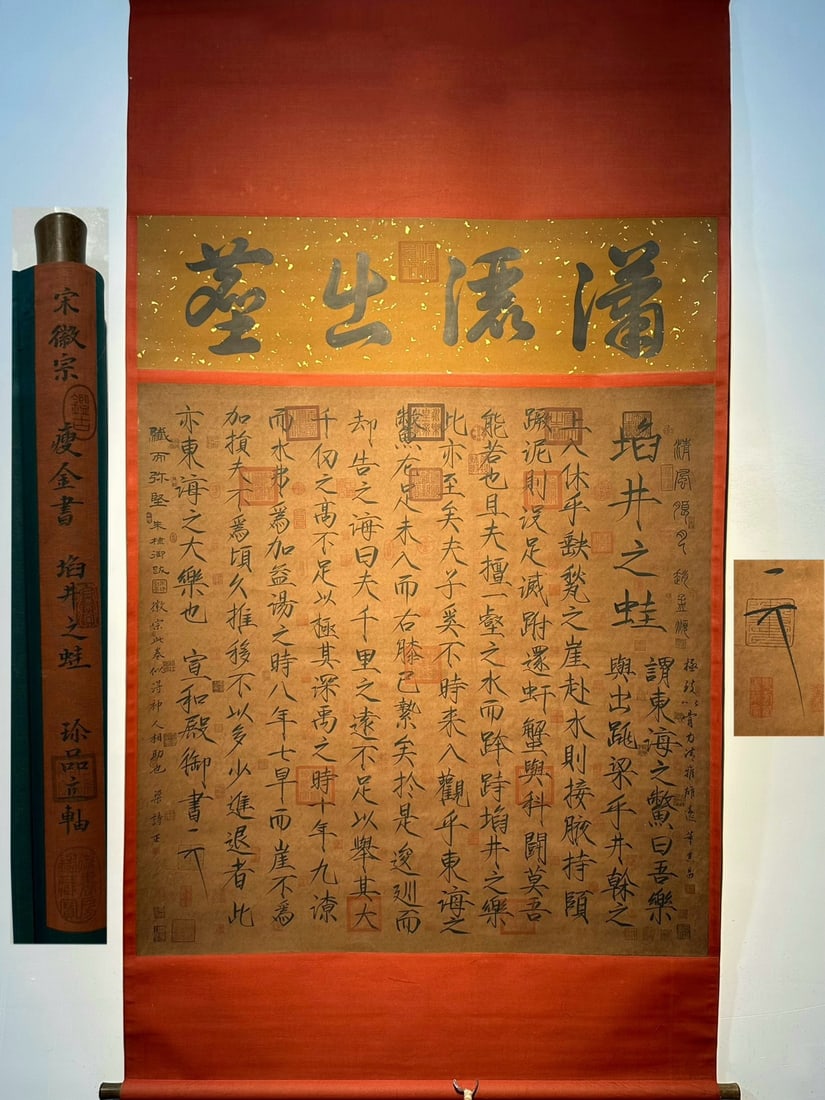 瀟灑出塵
趙孟頫
董其昌
埳井之蛙
謂東海之鱉曰吾樂
與出跳梁乎井榦之
上入休乎缺甃之崖赴水則接腋持頤
蹶泥則沒足滅跗還虷蟹與科鬪莫吾
能若也且夫擅一壑之水而跨跱埳井之樂
此亦至矣夫子奚不時來入觀乎東海之
鱉左足未入而右膝已縶矣於是逡巡而
却告之海曰夫千里之遠不足以舉其大
千仞之高不足以極其深禹之時十年九潦
而水弗爲加益湯之時八年七旱而崖不爲
加損夫不爲頃久推移不以多少進退者此
亦東海之大樂也 宣和殿御書
纖而弥堅 朱棣御跋
徽宗此卷似得神人相助也 梁詩正
宋徽宗 瘦金書 埳井之蛙 珍品立軸